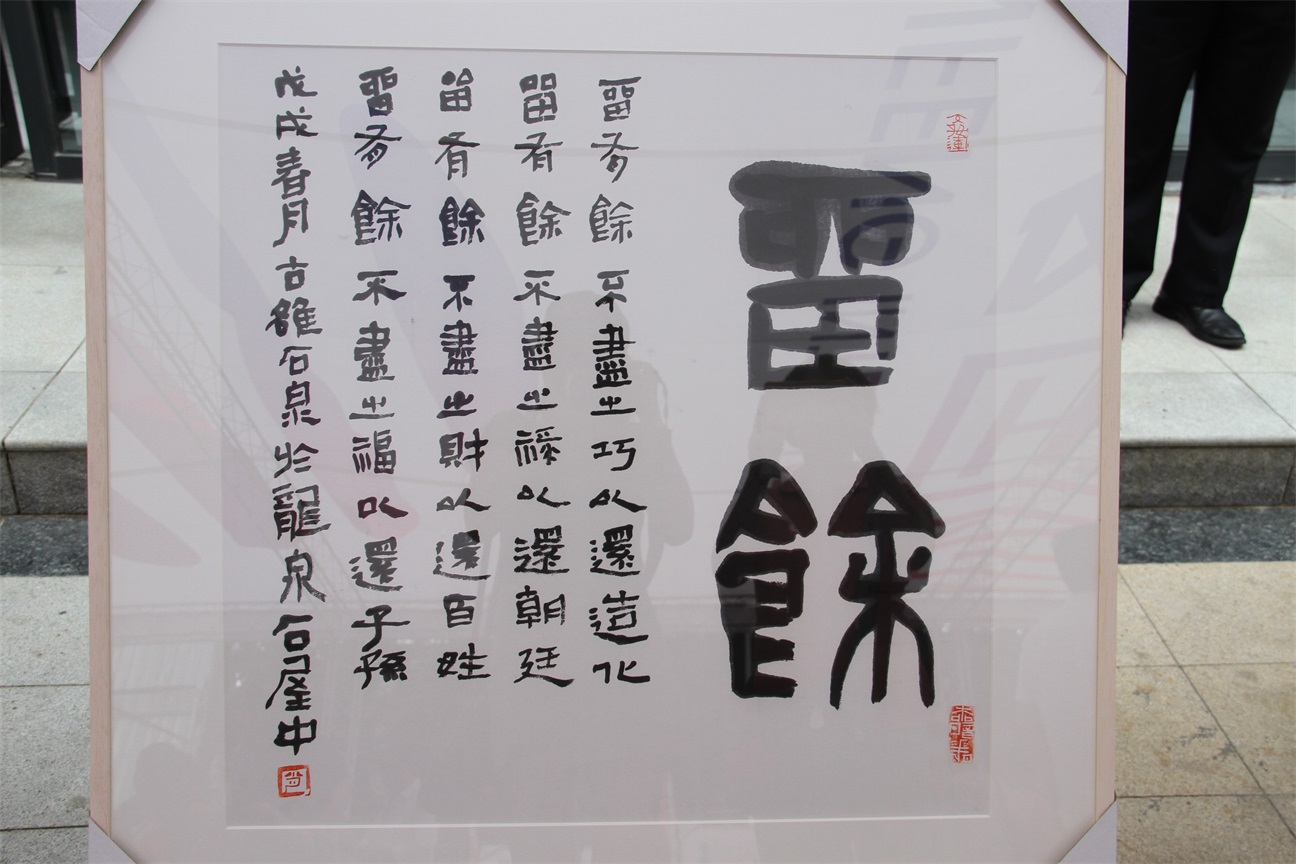 留餘
留有餘不盡之巧以還造化
留有餘不盡之祿以還朝廷
留有餘不盡之財以還百姓
留有餘不盡之福以還子孫
戊戌春月古雒石泉於龍泉石屋中